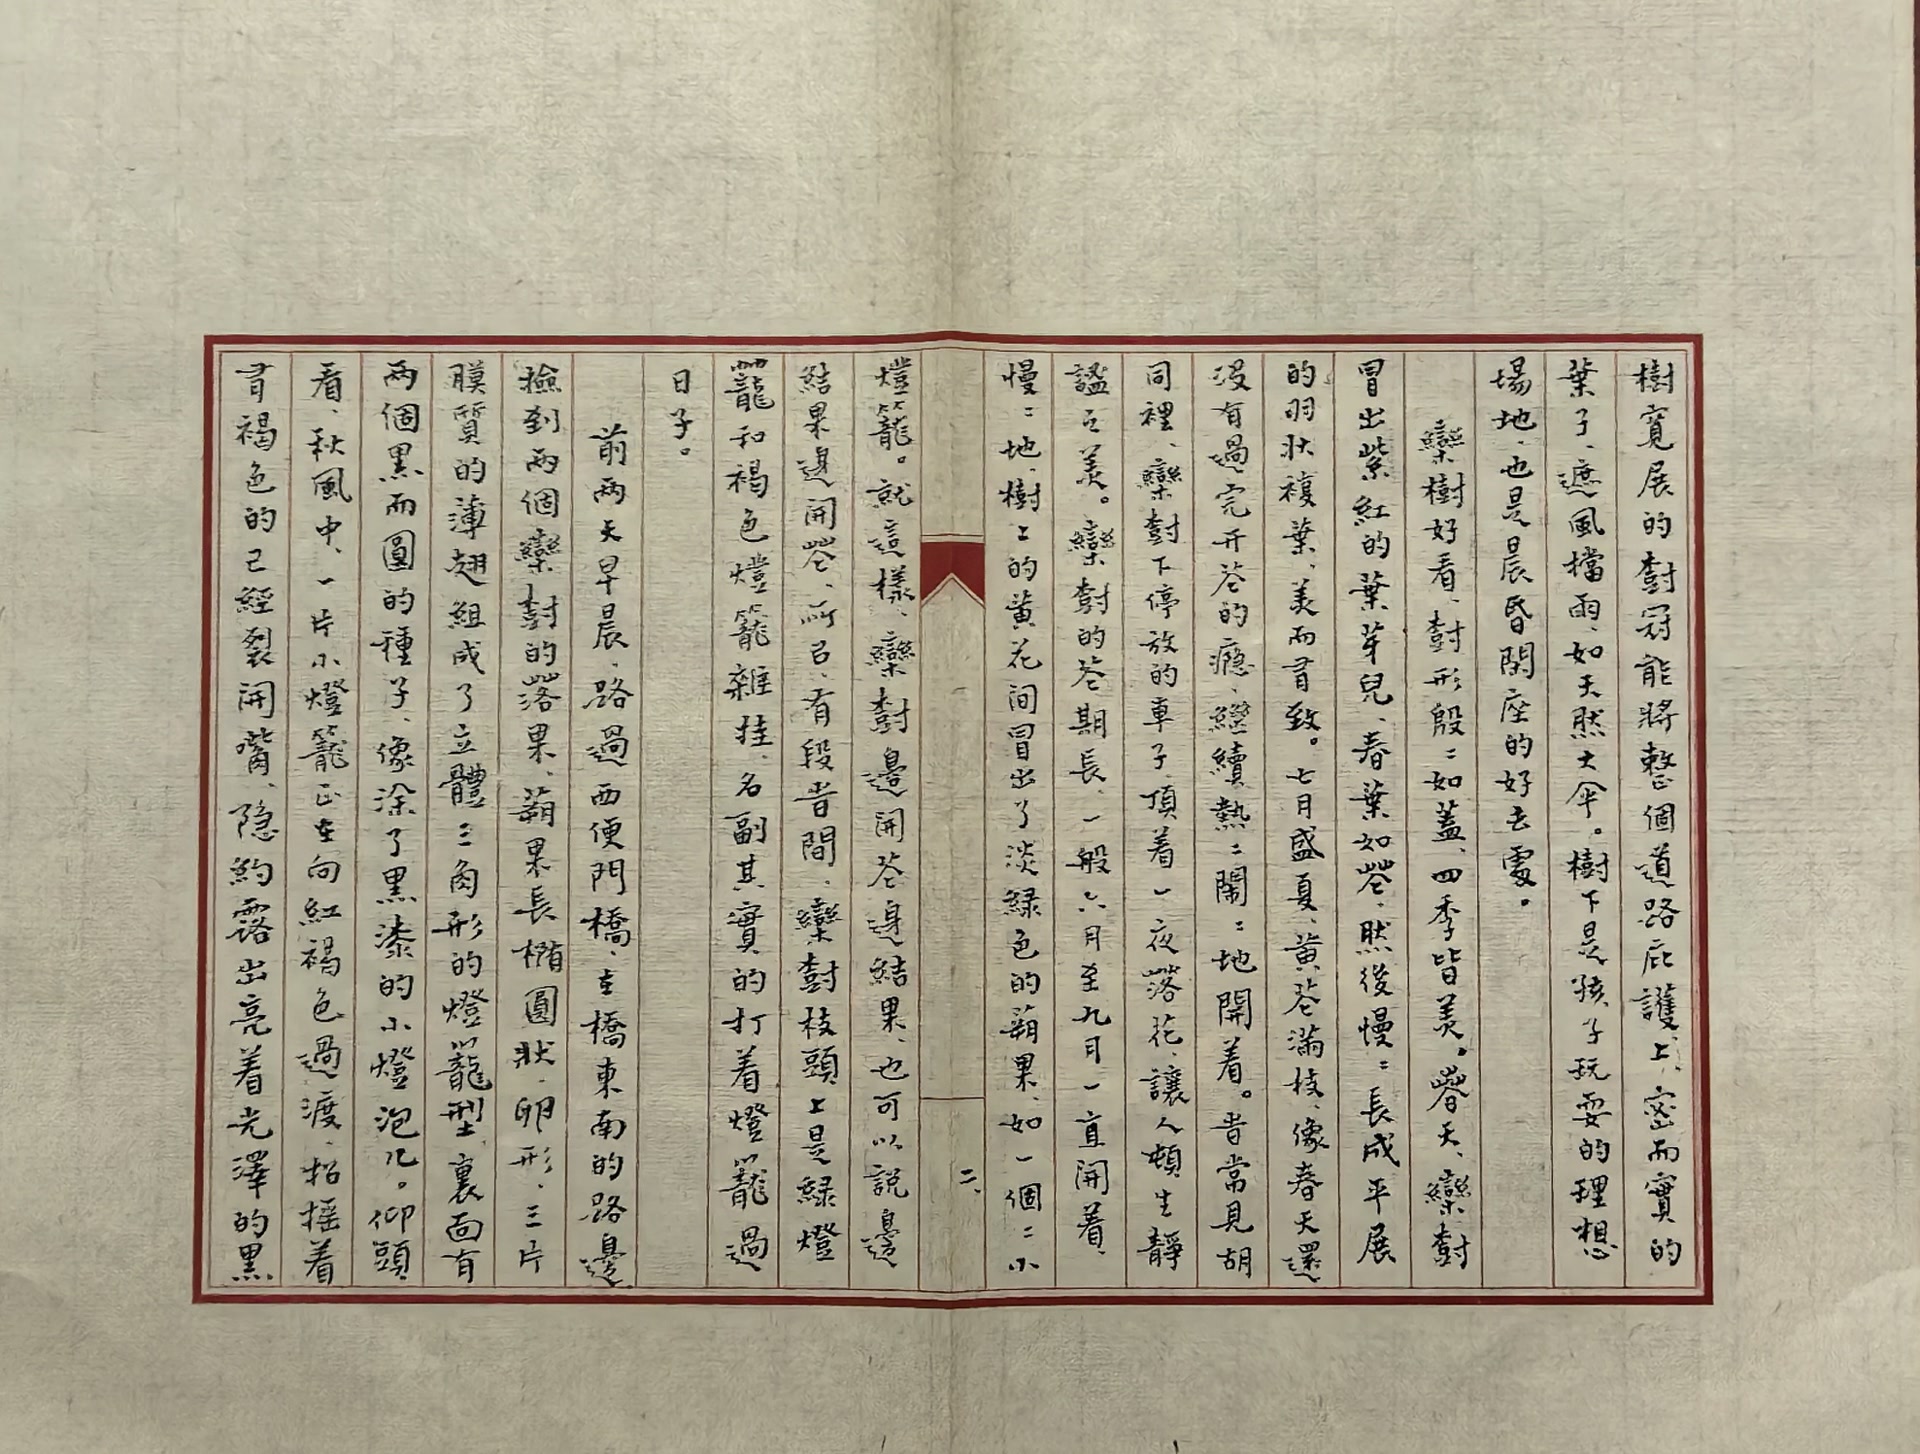 樹寬展的樹冠能將整個道路庇護上，密而實的
葉子、遮風擋雨、如天然大伞。樹下是孩子玩耍的理想
場地、也是晨昏閑座的好去處。
欒樹好看、樹形殷〻如蓋、四季皆美。春天、欒樹
冒出紫紅的葉芽兒、春葉如花、然後慢〻長成平展
的羽狀複葉、美而有致。七月盛夏、黄花滿枝、像春天還
没有過完开花的瘾、繼續熱〻鬧〻地開着。昔常見胡
同裡、欒樹下停放的車子、頂着一夜落花、讓人頓生靜
謐之美。欒樹的花期長、一般六月至九月一直開着、
慢〻地、樹上的黄花间冒出了淡緑色的蒴果、如一個〻小
燈籠。就這樣、欒樹邊開花邊結果、也可以説邊
結果邊開花、所以、有段时間、欒樹枝頭上是緑燈
籠和褐色燈籠雜挂、名副其實的打着燈籠過
日子。
前两天早晨、路過西便門橋、在橋東南的路邊
撿到两個欒樹的落果、蒴果長椭圓狀、卵形、三片
膜質的薄翅組成了立體三角形的燈籠型、裏面有
两個黑而圓的種子、像涂了黑漆的小燈泡儿。仰頭
看、秋風中、一片小燈籠正在向紅褐色過渡、招摇着
有褐色的已經裂開嘴、隐約露出亮着光澤的黑
二、